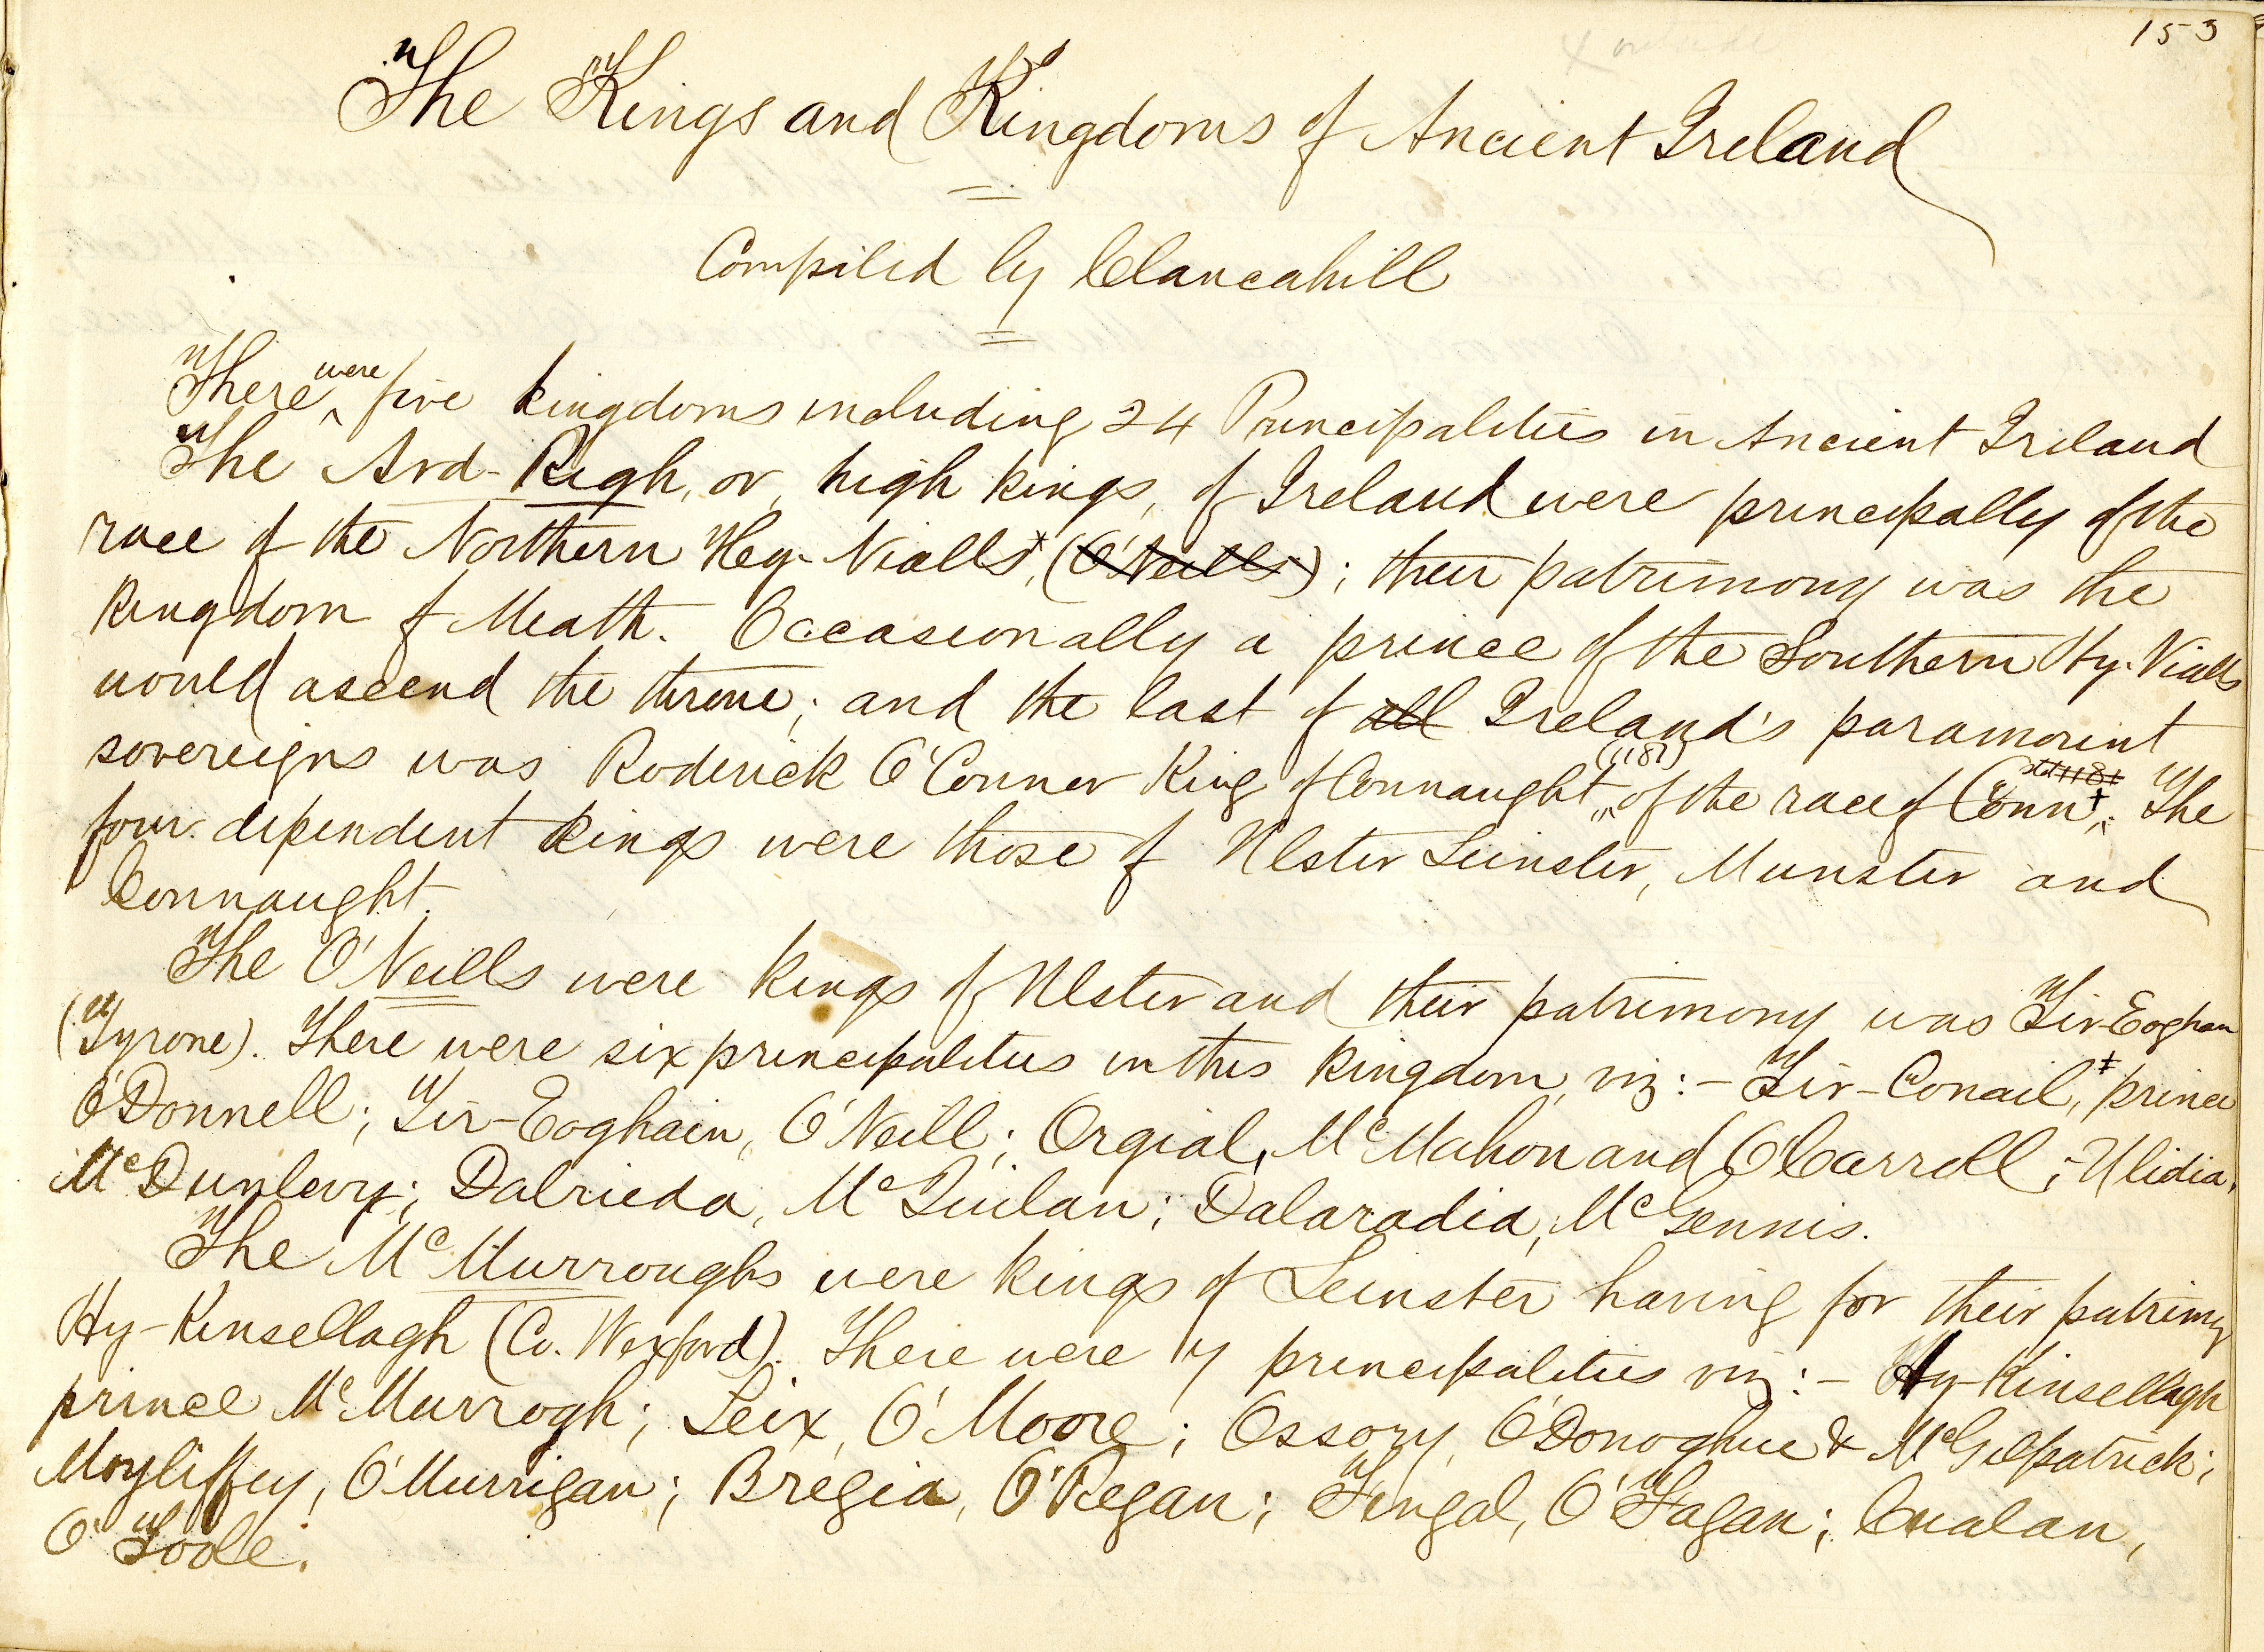 153
The Kings and Kingdoms of Ancient Ireland
Compiled by Clancahill
There were five kingdoms including 24 Principalities in Ancient Ireland
The Ard-Righ, or, high kings, of Ireland were principally of the
race of the Northern Hy-Nialls,* (O'Neills); their patrimony was the
kingdom of Meath. Occasionally a prince of the Southern Hy-Nialls
would ascend the throne; and the last of all Ireland's paramount
sovereigns was Roderick O'Conner King of Connaught (1181) of the race of Conn†. The
four dependent kings were those of Ulster Leinster, Munster and
Connaught.
The O'Neills were kings of Ulster and their patrimony was Tir-Eoghan
(Tyrone). There were six principalities in this kingdom, viz:- Tir-Conail,‡ prince
O'Donnell; Tir-Eoghain, O'Neill; Orgial, McMahon and O'Carroll; Ulidia,
McDunlevy; Dalrieda, McQuilan; Dalaradia, McGennis.
The McMurroughs were kings of Leinster having for their patrimy
Hy-Kinsellagh (Co. Wexford). There were 7 principalities viz:- Hy-Kinsellagh
prince McMurrogh; Leix, O'Moore; Ossory, O'Donoghue & McGilpatrick;
Moyliffey, O'Murrigan; Bregia, O'Regan; Fingal, O'Fagan; Cualan,
O'Toole.